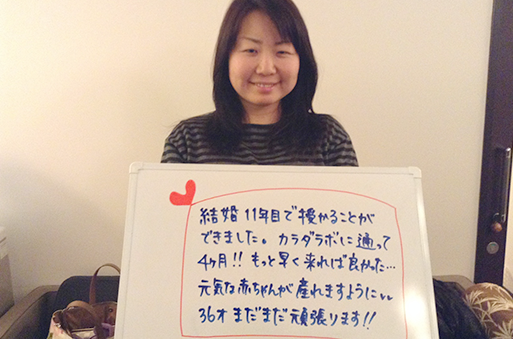 結婚11年目で授かることが
できました。カラダラボに通って
4ヶ月!!もっと早く来れば良かった…
元気な赤ちゃんが産れますように
36才まだまだ頑張ります!!